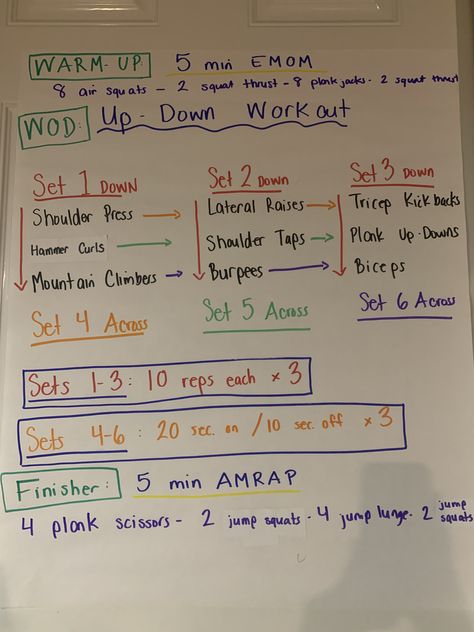 WARM-UP: 5 min EMOM
8 air squats - 2 squat thrust - 8 plank jacks - 2 squat thrust
WOD: Up-Down Workout
Set 1 DOWN Set 2 DOWN Set 3 DOWN
Shoulder Press → Lateral Raises → Tricep Kickbacks
Hammer Curls → Shoulder Taps → Plank Up-Downs
Mountain Climbers → Burpees → Biceps
Set 4 Across Set 5 Across Set 6 Across
Sets 1-3: 10 reps each x 3
Sets 4-6: 20 sec. on /10 sec. off x 3
Finisher: 5 min AMRAP
4 plank scissors - 2 jump squats - 4 jump lunge - 2 jump squats